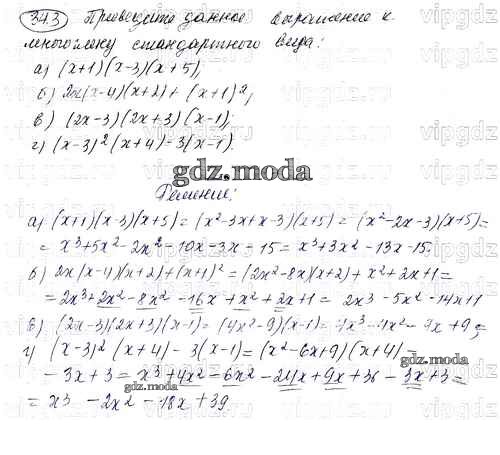 343 Приведите данное выражение к
многочлену стандартного вида:
а) (x+1)(x-3)(x+5);
б) 2x(x-4)(x+2) + (x+1)²;
в) (2x-3)(2x+3)(x-1);
г) (x-3)²(x+4) - 3(x-1).
gdz.moda
Решение:
а) (x+1)(x-3)(x+5) = (x²-3x+x-3)(x+5) = (x²-2x-3)(x+5) =
= x³+5x²-2x²-10x-3x-15 = x³+3x²-13x-15.
б) 2x(x-4)(x+2)+(x+1)² = (2x²-8x)(x+2)+x²+2x+1 =
= 2x³+2x²-8x²-16x+x²+2x+1 = 2x³-5x²-14x+1
в) (2x-3)(2x+3)(x-1) = (4x²-9)(x-1) = 4x³-4x²-9x+9;
г) (x-3)²(x+4)-3(x-1) = (x²-6x+9)(x+4) -
gdz.moda
- 3x+3 = x³+4x²-6x²-24x+9x+36-3x+3 =
gdz.moda
= x³-2x²-18x+39